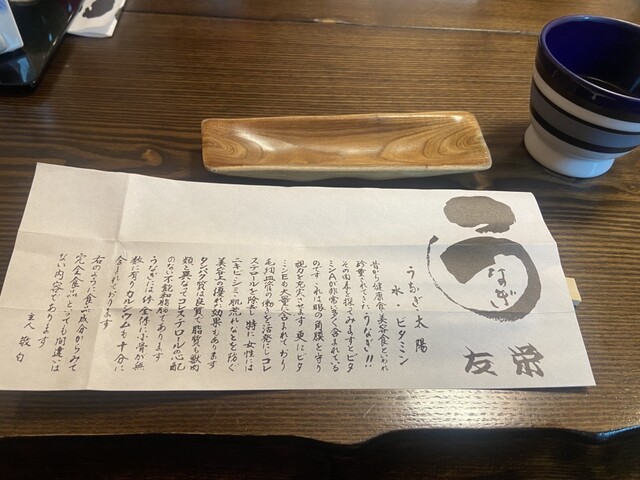 うなぎ
友栄
うなぎ・太陽
水・ビタミン
昔から健康食美容食といわれ
珍重されてきたうなぎ!!
その肉を探てみますとビタ
ミンAが非常に多く含まれている
のですこれは眼の角膜を守り
視力を充実させます更にビタ
ミンEも大量に含まれており
毛細血管の働きを活発にしコレ
ステロールを除去し特に女性には
ニキビ・シミ・肌荒れなどを防ぐ
美容上の優れた効果もあります
タンパク質は良質で脂質も獣肉
類と異なってコレステロールの心配
のない不飽和脂肪であります
うなぎには体全体に小骨が無
数に有りカルシウムも十分に
含まれております
右のように食品成分からみて
完全食品といっても間違いは
ない内容であります
主人 敬白